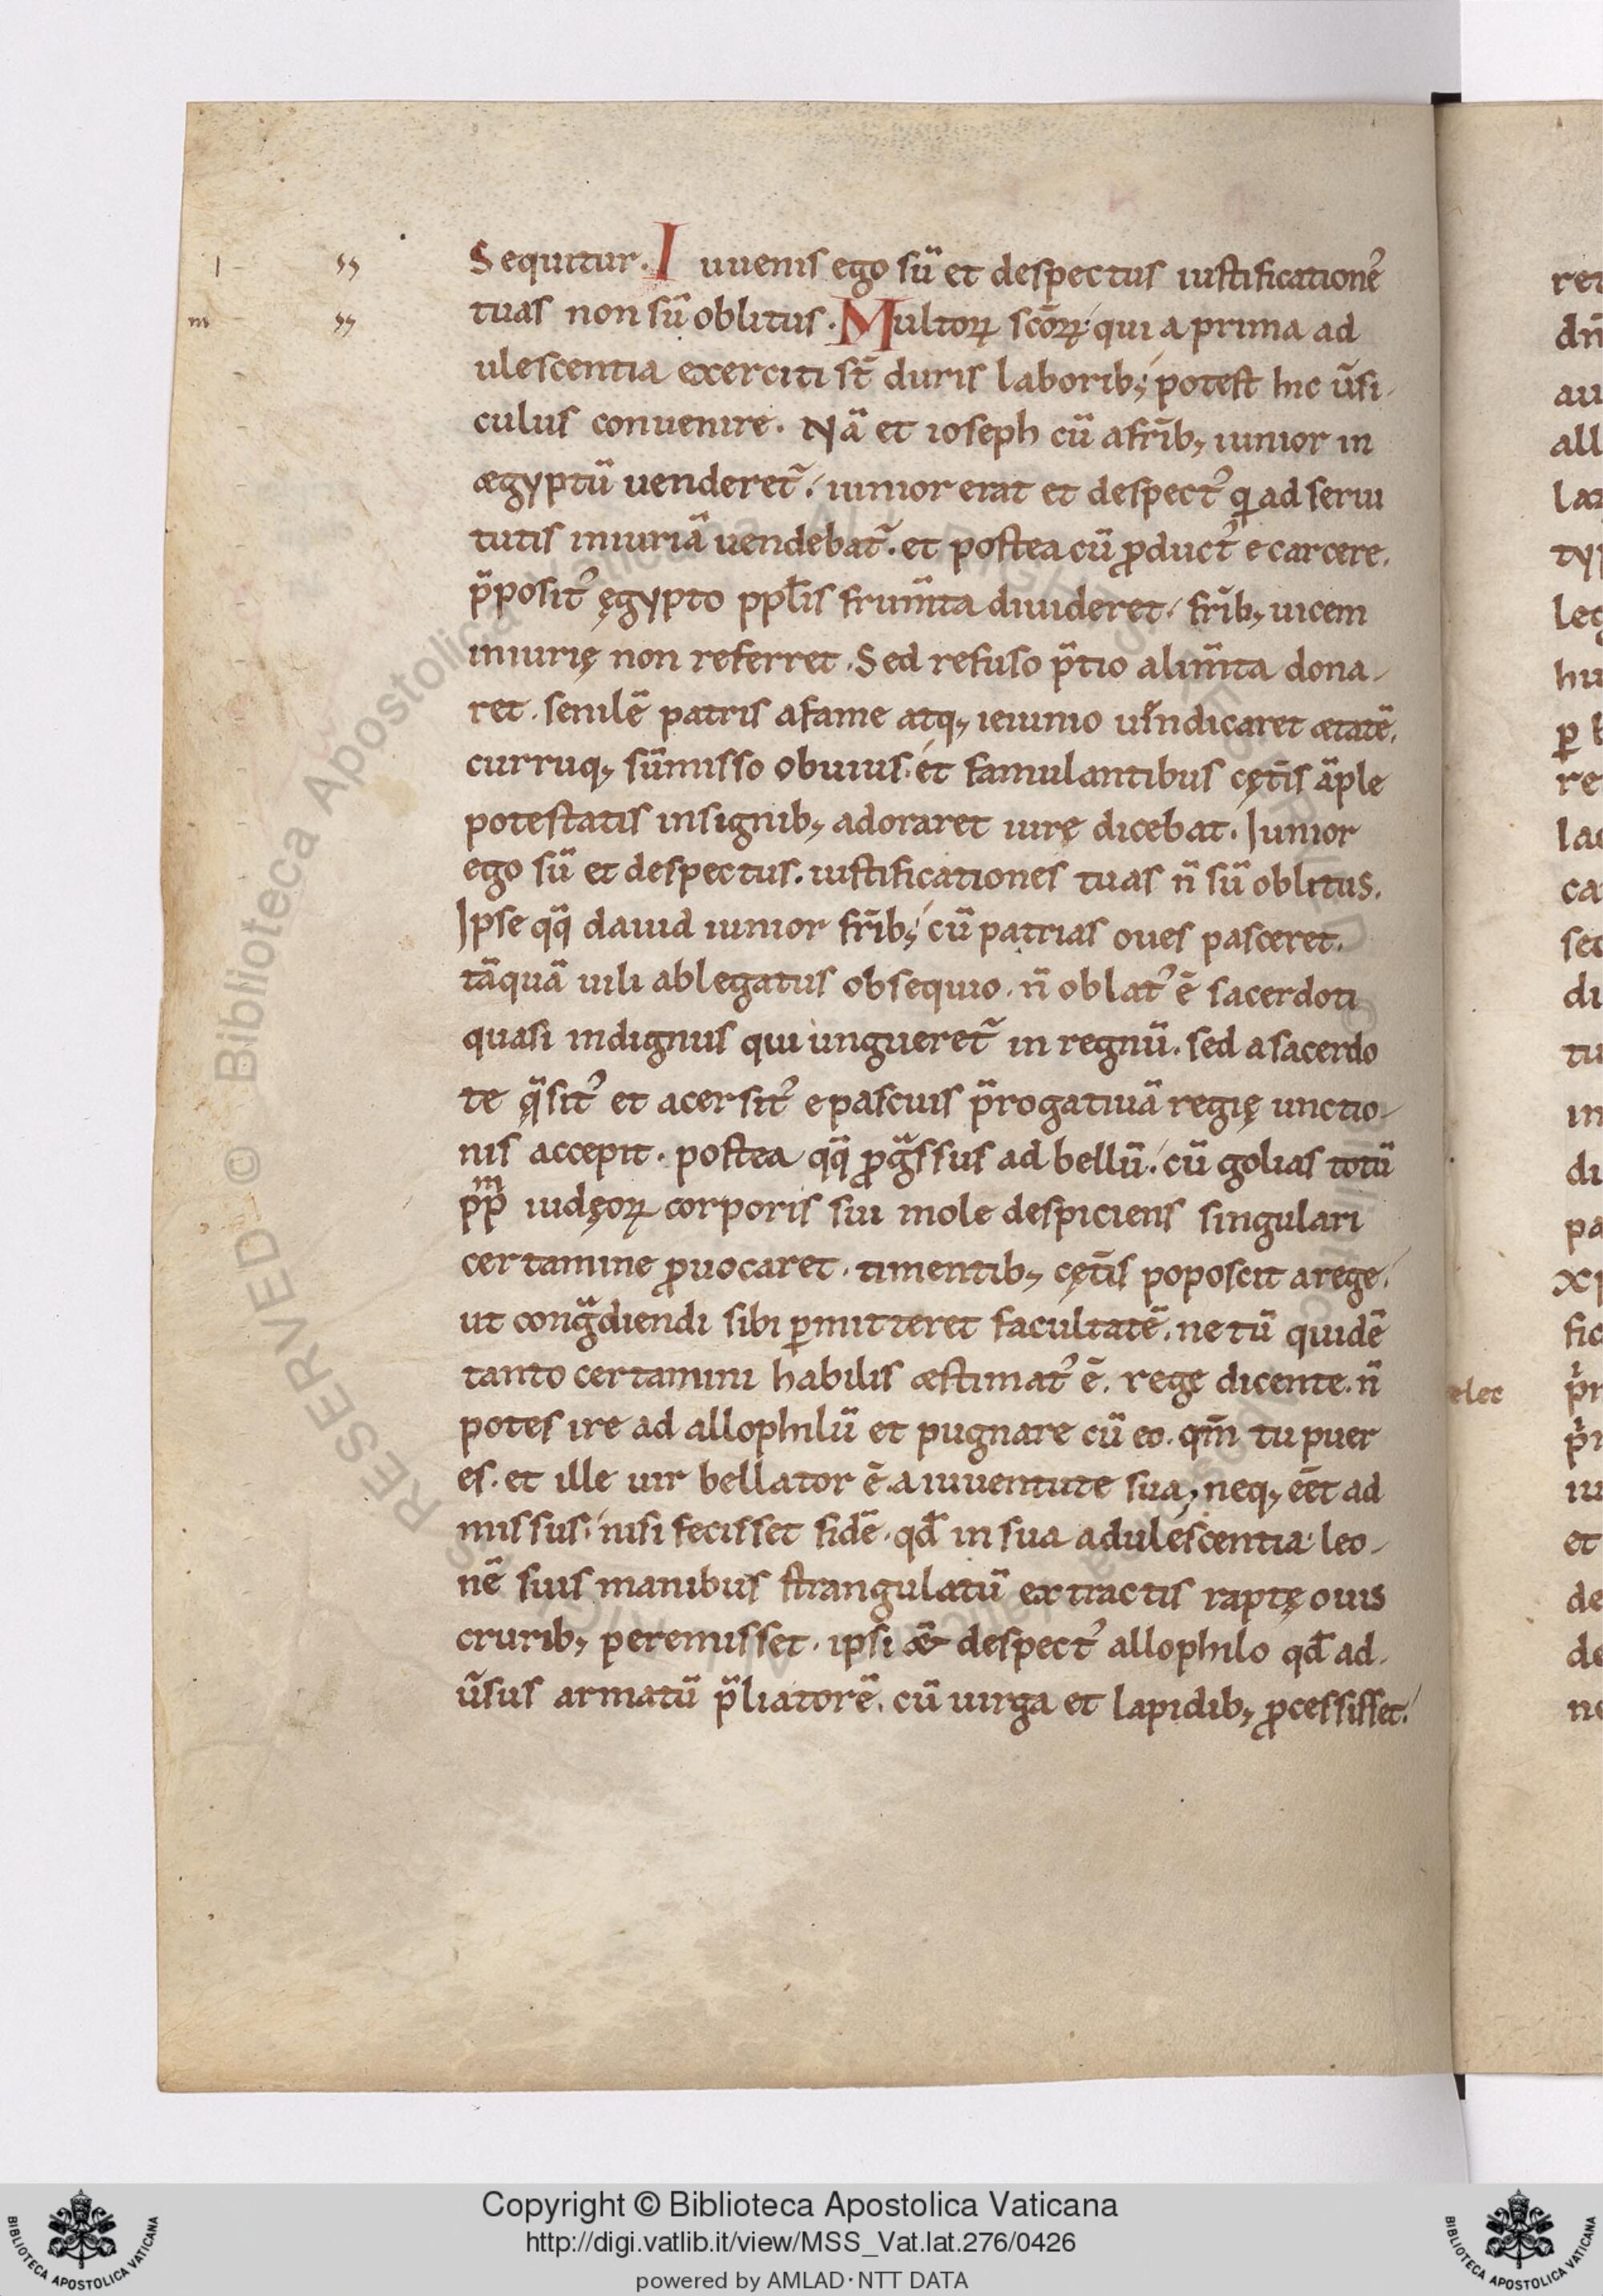 Sequitur. Iuuenis ego sū et despectus iustificationē
tuas non sū oblitus. Multoꝝ scōꝝ qui a prima ad
ulescentia exerciti st̄ duris laborib; potest hic ūsi-
culus conuenire. Nā et ioseph cū a frīb; iunior in
ægyptū uenderet᷑. iunior erat et despect᾽ qi ad serui
tutis iniuriā uendebat᷑. et postea cū ꝓduct᾽ e carcere.
p̄posit᾽ ęgypto ppłis frum̄ta diuideret. frīb; uicem
iniurię non referret. Sed refuso p̄tio alim̄ta dona-
ret. senilē patris a fame atq; ieiunio uindicaret ætatē.
curruq; sūmisso obuius. et famulantibus cęt̄is āplę
potestatis insignib; adoraret iure dicebat. Iunior
ego sū et despectus. iustificationes tuas n̄ sū oblitus.
Ipse qq̄ dauid iunior frīb; cū patrias oues pasceret.
tāquā uili ablegatus obsequio. n̄ oblat᾽ ē sacerdoti
quasi indignus qui ungueret᷑ in regnū. sed a sacerdo
te q̄sit᾽ et acersit᾽ e pascuis p̄rogatiuā regię unctio-
nis accepit. postea qq̄ ꝓgᷓssus ad bellū. cū golias totū
ppᷟ iudęoꝝ corporis sui mole despiciens singulari
certamine ꝓuocaret. timentib; cęt̄is poposcit a rege.
ut congᷓdiendi sibi ꝑmitteret facultatē. ne tū quidē
tanto certamini habilis æstimat᾽ ē. rege dicente. n̄
potes ire ad allophilū et pugnare cū eo. qm̄ tu puer
es. et ille uir bellator ē a iuuentute sua, neq; eēt ad
missus. nisi fecisset fidē. qđ in sua adulescentia leo-
nē suis manibus strangulatū extractis raptę ouis
crurib; peremisset. ipsi despect᾽ allophilo qđ ad-
ūsus armatū p̄liatorē. cū uirga et lapidib; ꝓcessisset.
Copyright © Biblioteca Apostolica Vaticana
http://digi.vatlib.it/view/MSS_Vat.lat.276/0426
powered by AMLAD·NTT DATA